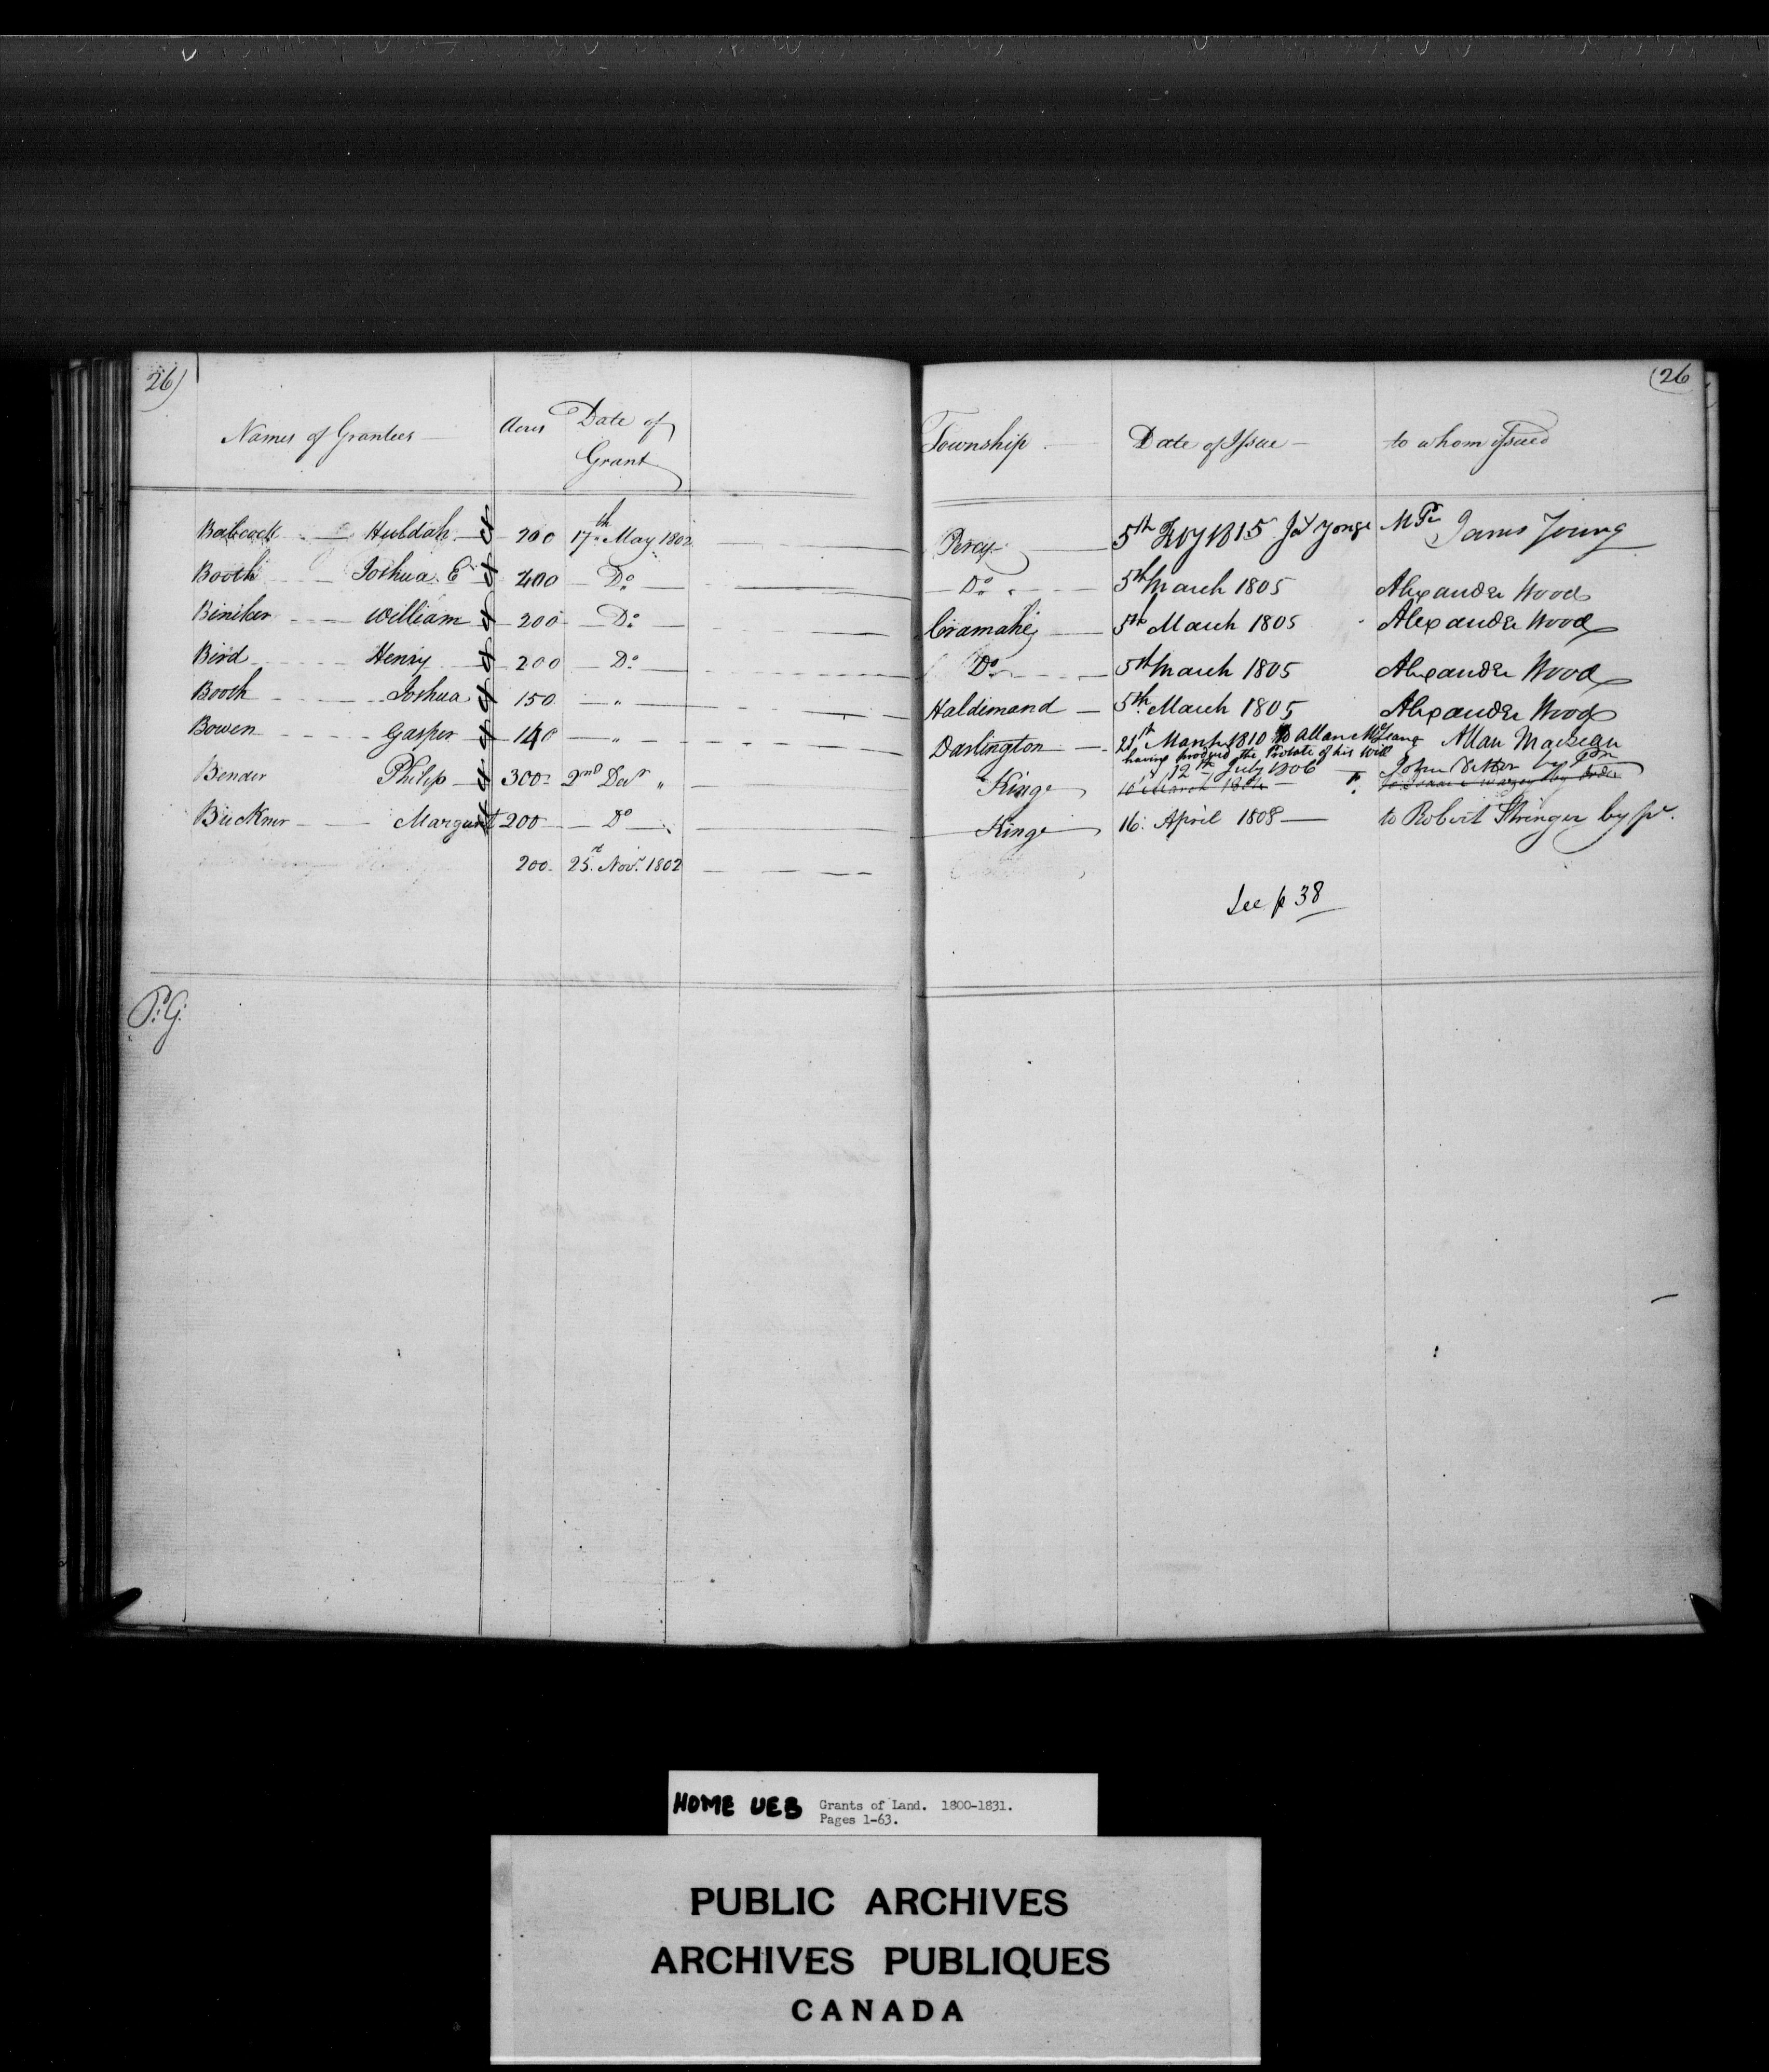 26)
(26
Names of Grantees Acres Date of Grant Township Date of Issue to whom Issued
Babcock Huldah 200 17th May 1802 Percy 5th Feby 1815 Js Yonge M Pr James Young
Booth Joshua E 400 Do Do 5th March 1805 Alexander Wood
Biniker William 200 Do Cramahe 5th March 1805 Alexander Wood
Bird Henry 200 Do Do 5th March 1805 Alexander Wood
Booth Joshua 150 " Haldimand 5th March 1805 Alexander Wood
Bowen Gasper 140 " Darlington 21st March 1810 to Allan McLean Allan Maclean
having produced the Probate of his Will
Bender Philip 300 2nd Decr " Kinge 12th July 1806 John by Pr
10 March 1804 by order
Buckner Margaret 200 Do Kinge 16 April 1808 to Robert Stringer by pr.
200 25 Novr 1802
See p 38
P.G.
HOME UEB Grants of Land. 1800-1831.
Pages 1-63.
PUBLIC ARCHIVES
ARCHIVES PUBLIQUES
CANADA